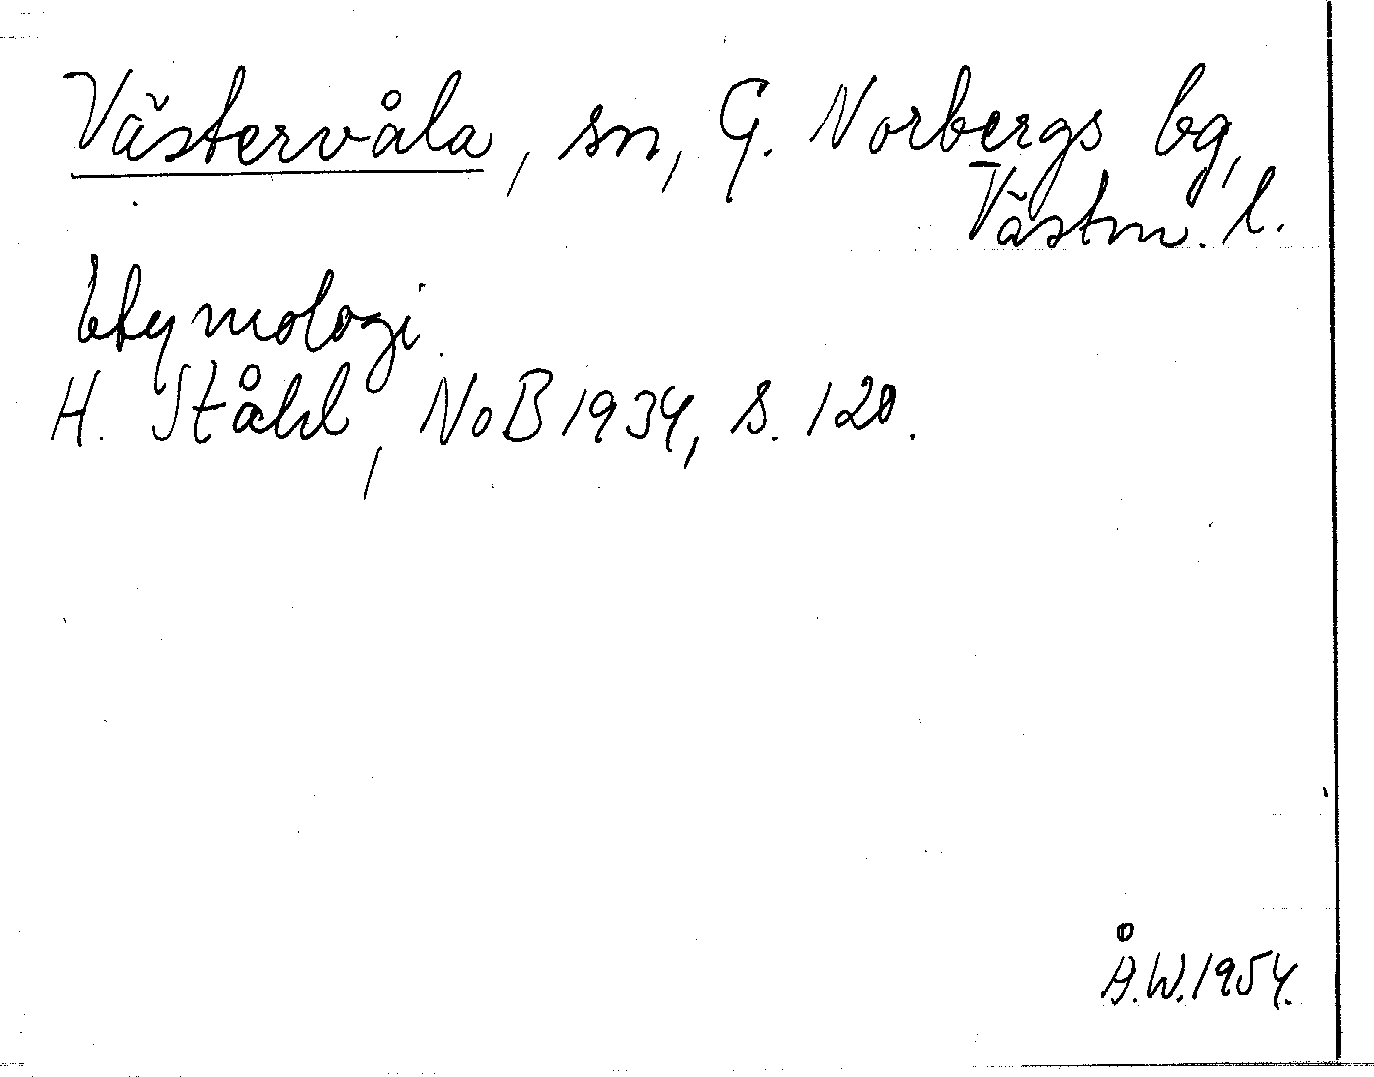 Västervåla, sn, G. Norbergs bg,
Västm. l.
Etymologi
H. Ståhl, NoB 1934, s. 120.
Å.W. 1954.